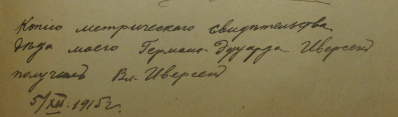 Копію метрическаго свидѣтельства
дѣда моего Германа-Эдуарда Иверсенъ
получилъ Вл. Иверсенъ
5/XII 1915 г.